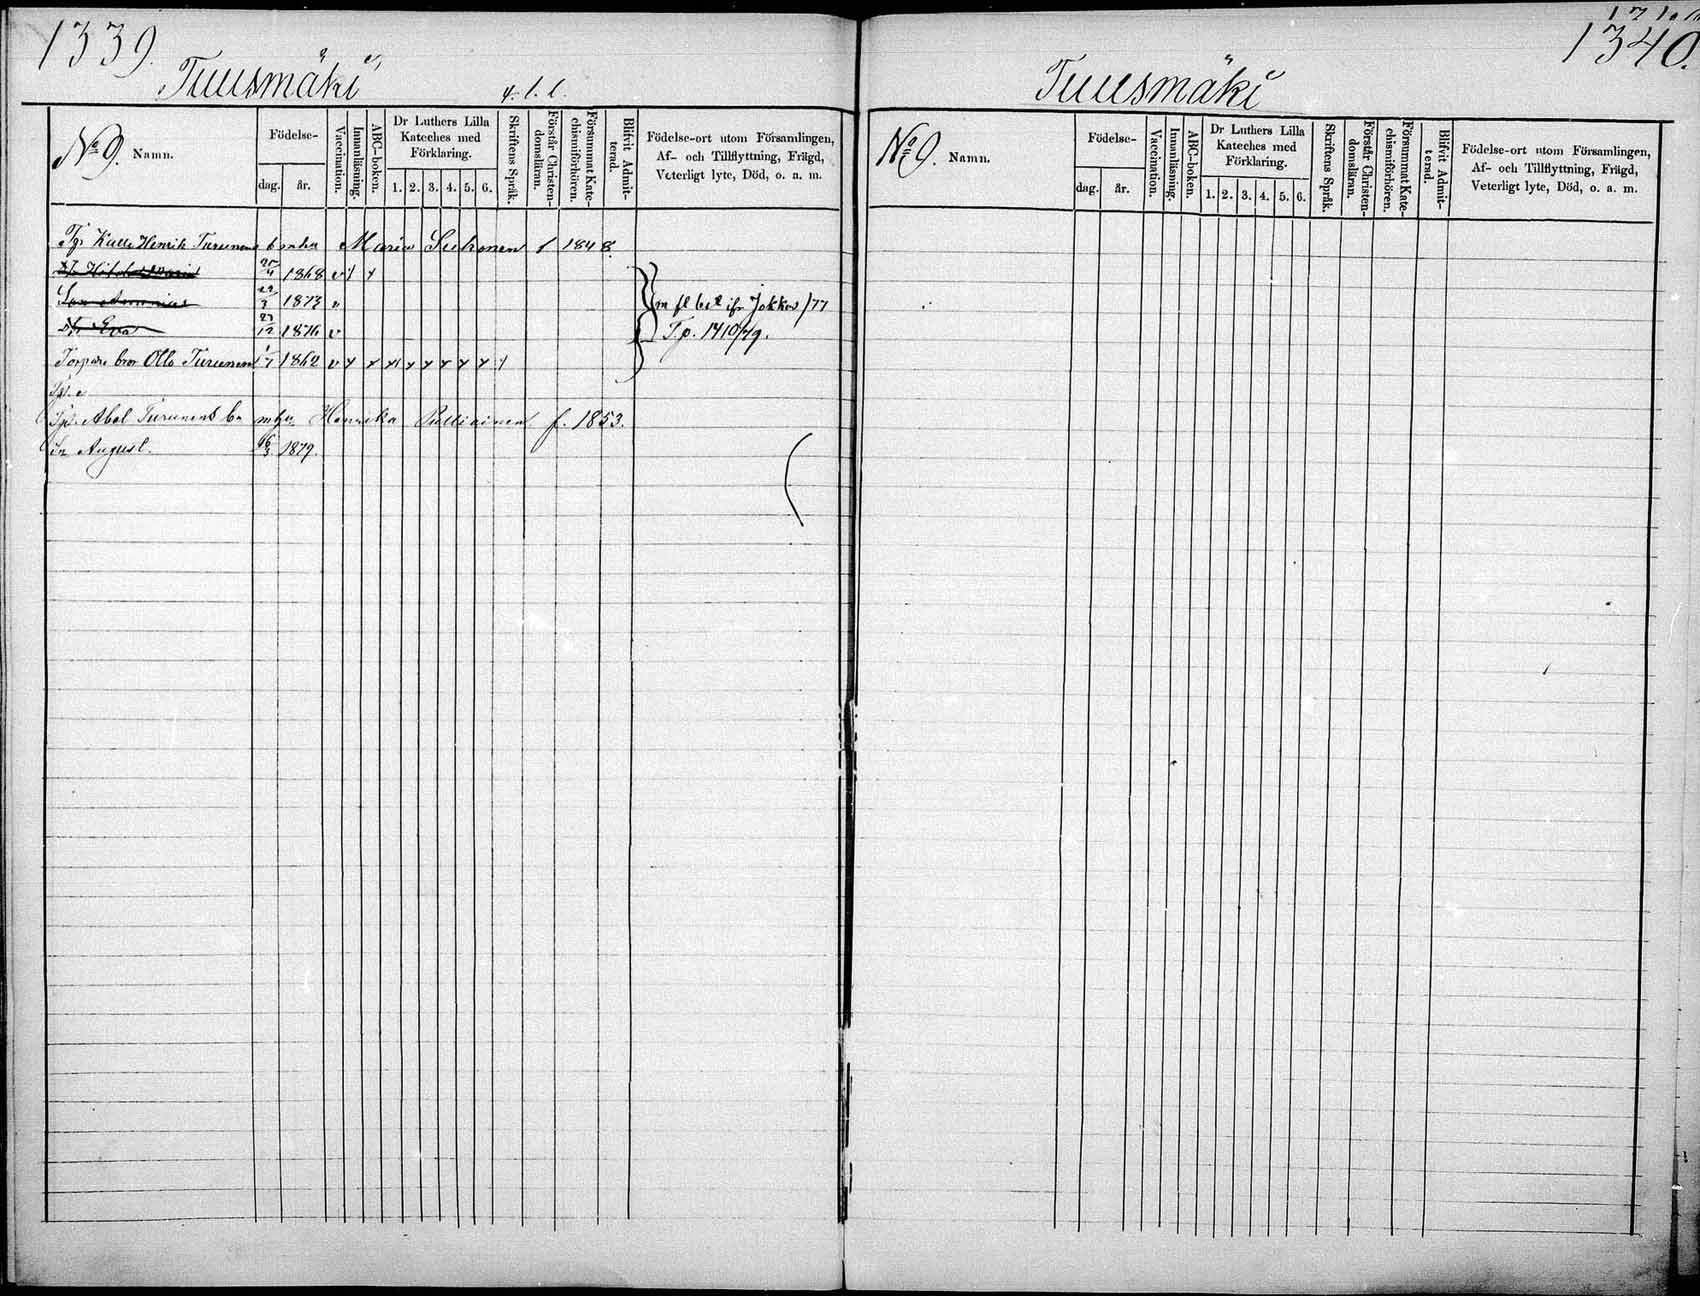 1339.
Tuusmäki
N:o 9. Namn.
Födelse-
dag. år.
Vaccination.
Innanläsning.
ABC-boken.
Dr Luthers Lilla
Kateches med
Förklaring.
1. 2. 3. 4. 5. 6.
Skriftens Språk.
Förstår Christen-
domsläran.
Försummat Kate-
chismiförhören.
Blifvit Admit-
terad.
Födelse-ort utom Församlingen,
Af- och Tillflyttning, Frägd,
Veterligt lyte, Död, o. a. m.
Kalle Henrik Turunens Maria f 1848.
25/4 1868 v
1873 v
Dr Eva 23/12 1876 v
bror Olto Turunen 1/7 1862 v
m fl /77
T.p. 1410/79.
Abel Turunens f. 1853.
Sn August. 1879.
1340.
Tuusmäki
N:o 9. Namn.
Födelse-
dag. år.
Vaccination.
Innanläsning.
ABC-boken.
Dr Luthers Lilla
Kateches med
Förklaring.
1. 2. 3. 4. 5. 6.
Skriftens Språk.
Förstår Christen-
domsläran.
Försummat Kate-
chismiförhören.
Blifvit Admit-
terad.
Födelse-ort utom Församlingen,
Af- och Tillflyttning, Frägd,
Veterligt lyte, Död, o. a. m.